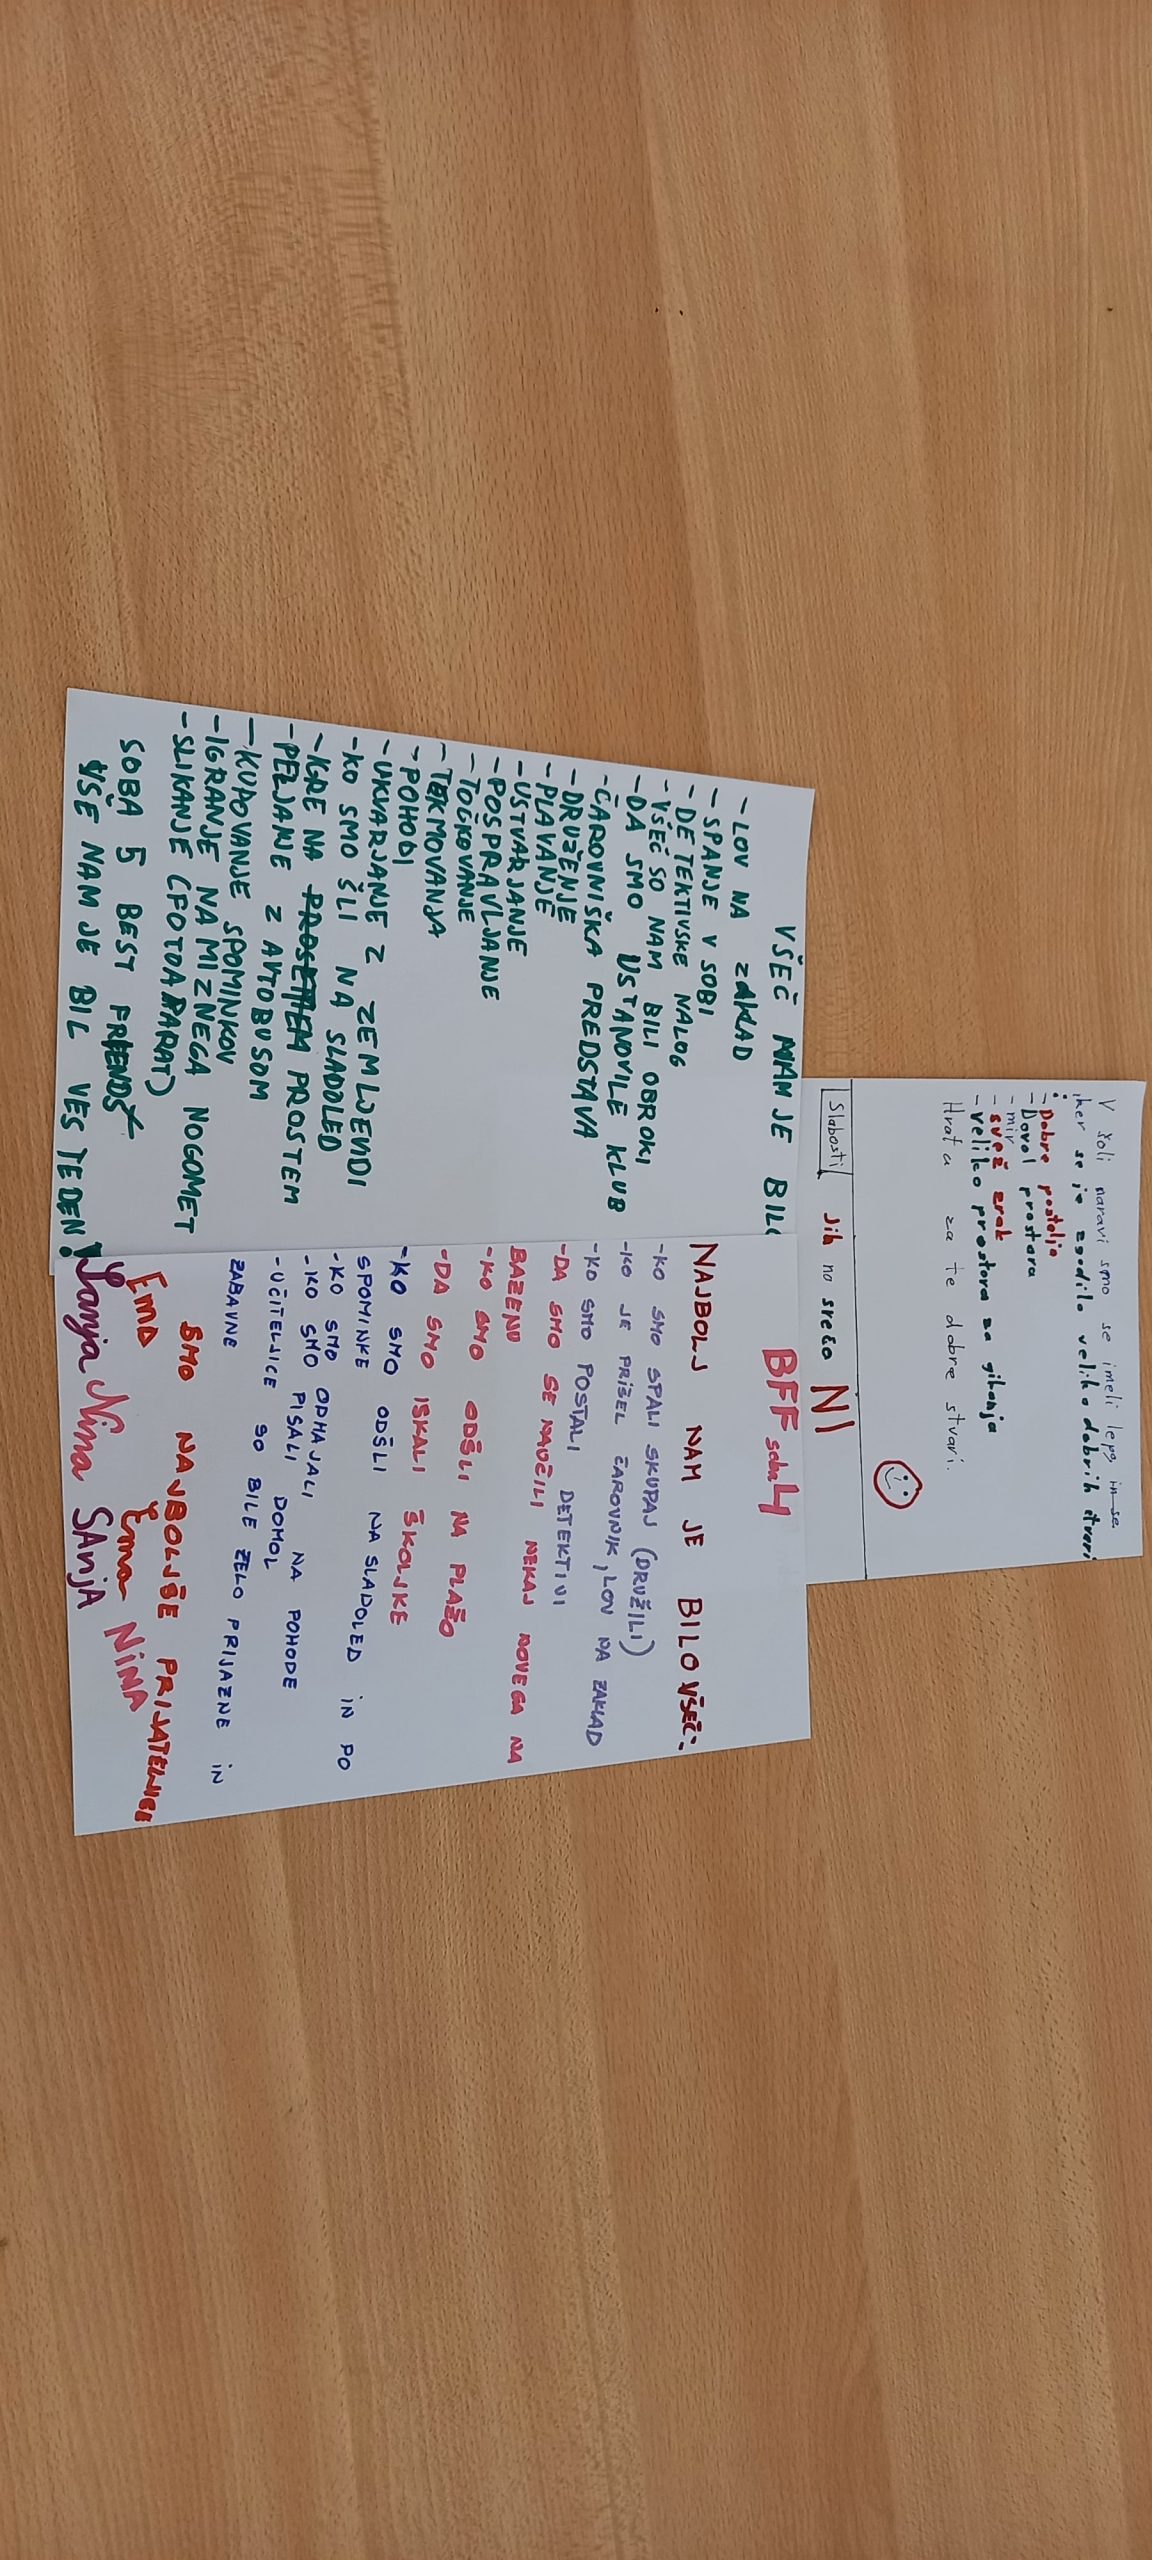 V šoli naravi smo se imeli lepo in se
ker se je zgodilo veliko dobrih stvari
:
- Dobre postelje
- Dovol prostora
- mir
- svež zrak
- veliko prostora za gibanja
Hvala za te dobre stvari.
Slabosti jih no srečo NI
VŠEČ NAM JE BILO
- LOV NA ZAKLAD
- SPANJE V SOBI
- DETEKTIVSKE NALOG
- VŠEČ SO NAM BILI OBROKI
- DA SMO USTANOVILE KLUB
- ČAROVNIŠKA PREDSTAVA
- DRUŽENJE
- PLAVANJE
- USTVARJANJE
- POSPRAVLJANJE
- TOČKOVANJE
- TEKMOVANJA
- POHODI
- UKVARJANJE Z ZEMLJEVIDI
- KO SMO ŠLI NA SLADOLED
- IGRE NA PROSTEM
- PELJANJE Z AVTOBUSOM
- KUPOVANJE SPOMINKOV
- IGRANJE NAMIZNEGA NOGOMET
- SLIKANJE (FOTOAPARAT)
SOBA 5 BEST FRIENDS
VŠE NAM JE BIL VES TEDEN!
BFF soba 4
NAJBOLJ NAM JE BILO VŠEČ:
-KO SMO SPALI SKUPAJ (DRUŽILI)
-KO JE PRIŠEL ČAROVNIK, LOV NA ZAKLAD
-KO SMO POSTALI DETEKTIVI
-DA SMO SE NAUČILI NEKAJ NOVEGA NA
BAZENU
-KO SMO ODŠLI NA PLAŽO
-DA SMO ISKALI ŠKOLJKE
-KO SMO ODŠLI NA SLADOLED IN PO
SPOMINKE
-KO SMO ODHAJALI NA POHODE
-KO SMO PISALI DOMOV
-UČITELJICE SO BILE ZELO PRIJAZNE IN
ZABAVNE
SMO NAJBOLJŠE PRIJATELJICE
Ema Ema NINA
Sanja Nina SANJA